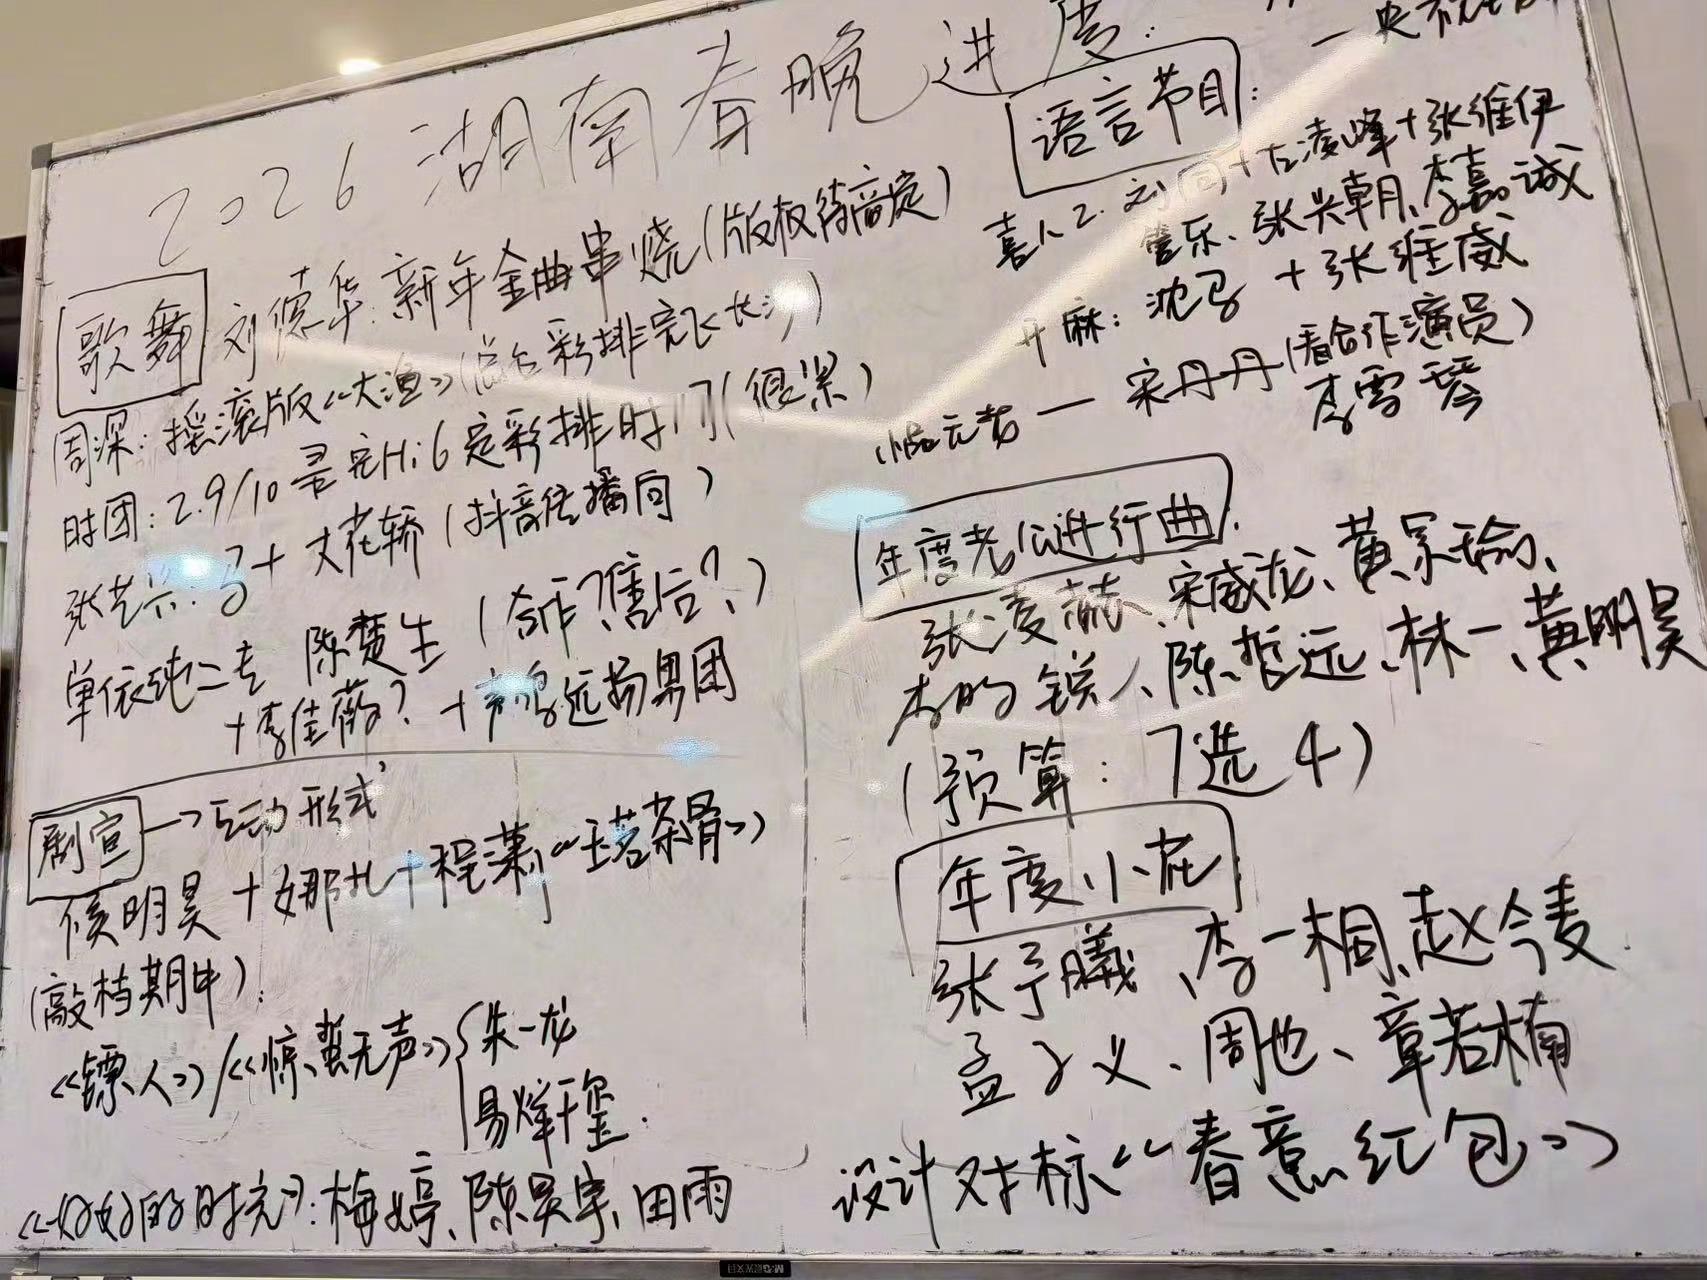 2026 湖南春晚进度:
歌舞
刘德华:新年金曲串烧(版权待商定)
周深:摇滚版《大渔》(总台彩排完飞长沙)
时团:2.9/10录完Hi6定彩排时间(很累)
张艺兴:子+大花轿(抖音传播向)
单依纯二专 陈楚生(合作?售后?)
+李佳薇?+声鸣远扬男团
剧宣→互动形式
侯明昊+娜扎+程潇《玉茗茶骨》
(敲档期中):
《镖人》/《惊蛰无声》{朱一龙
易烊千玺.
《好好的时光》:梅婷、陈昊宇、田雨
语言节目:
喜人2.刘同+左凌峰+张维伊
管乐、张兴朝、李嘉诚
开麻:沈马+张维威
— 宋丹丹(看合作演员)
李雪琴
年度老公进行曲.
张凌赫、宋威龙、黄景瑜、
李昀锐、陈哲远、林一、黄明昊
(预算:7选4)
年度小花
张予曦、李一桐、赵今麦
孟子义、周也、章若楠
设计对标《春意红包》
M&G晨光文具